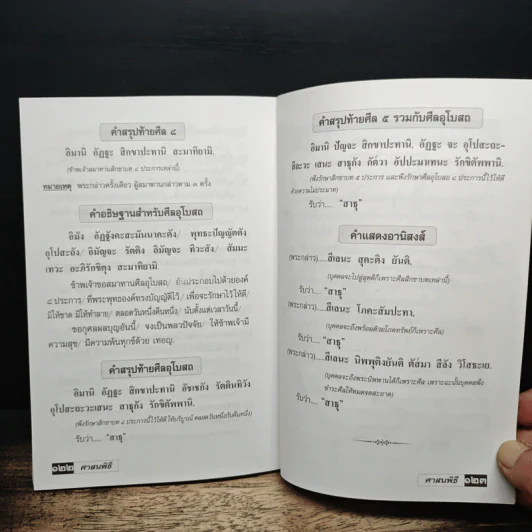 คำสรุปท้ายศีล ๘
อิมานิ อัฏฐะ สิกขาปะทานิ สะมาทิยามิ.
(ข้าพเจ้าสมาทานสิกขาบท ๘ ประการเหล่านี้)
หมายเหตุ พระกล่าวครั้งเดียว ผู้สมาทานกล่าวตาม ๓ ครั้ง
คำอธิษฐานสำหรับศีลอุโบสถ
อิมัง อัฏฐังคะสะมันนาคะตัง/ พุทธะปัญญัตตัง
อุโปสะถัง/ อิมัญจะ รัตติง อิมัญจะ ทิวะสัง/ สัมมะ
เทวะ อะภิรักขิตุง สะมาทิยามิ
ข้าพเจ้าขอสมาทานศีลอุโบสถ/ อันประกอบไปด้วยองค์
๘ ประการ/ ที่พระพุทธองค์ทรงบัญญัติไว้/ เพื่อจะรักษาไว้ให้ดี/
มิให้ขาด มิให้ทำลาย/ ตลอดวันหนึ่งคืนหนึ่ง/ นับตั้งแต่เวลาวันนี้/
ขอกุศลผลบุญอันนี้/ จงเป็นพลวปัจจัย/ ให้ข้าพเจ้ามี
ความสุข/ มีความพ้นทุกข์ด้วย เทอญ.
คำสรุปท้ายศีลอุโบสถ
อิมานิ อัฏฐะ สิกขาปะทานิ อัชเชกัง รัตตินทิวัง
อุโปสะถะวะเสนะ สาธุกัง รักขิตัพพานิ.
(พึงรักษาสิกขาบท ๘ ประการนี้ไว้ให้ดี ให้บริบูรณ์ ตลอดวันหนึ่งกับคืนหนึ่ง)
รับว่า.... "สาธุ"
๑๒๒ ศาสนพิธี
คำสรุปท้ายศีล ๕ รวมกับศีลอุโบสถ
อิมานิ ปัญจะ สิกขาปะทานิ, อัฏฐะ จะ อุโปสะถะ-
สีละวะ เสนะ สาธุกัง กัต๎วา อัปปะมาเทนะ รักขิตัพพานิ.
(พึงรักษาสิกขาบท ๕ ประการ และพึงรักษาศีลอุโบสถ ๘ ประการนี้ไว้ให้ดี
ด้วยความไม่ประมาท)
รับว่า... "สาธุ"
คำแสดงอานิสงส์
(พระกล่าว)....สีเลนะ สุคะติง ยันติ.
(บุคคลจะไปสู่สุคติก็เพราะศีลสิกขาบทเหล่านี้)
รับว่า.... "สาธุ"
(พระกล่าว)....สีเลนะ โภคะสัมปะทา.
(บุคคลจะถึงพร้อมด้วยโภคทรัพย์ก็เพราะศีล)
รับว่า.... "สาธุ"
(พระกล่าว)....สีเลนะ นิพพุติงยันติ ตัส๎มา สีลัง วิโสธะเย.
(บุคคลจะถึงพระนิพพานได้ก็เพราะศีล เพราะฉะนั้นบุคคลพึง
ชำระศีลให้หมดจดสะอาด)
รับว่า.... "สาธุ"
ศาสนพิธี ๑๒๓